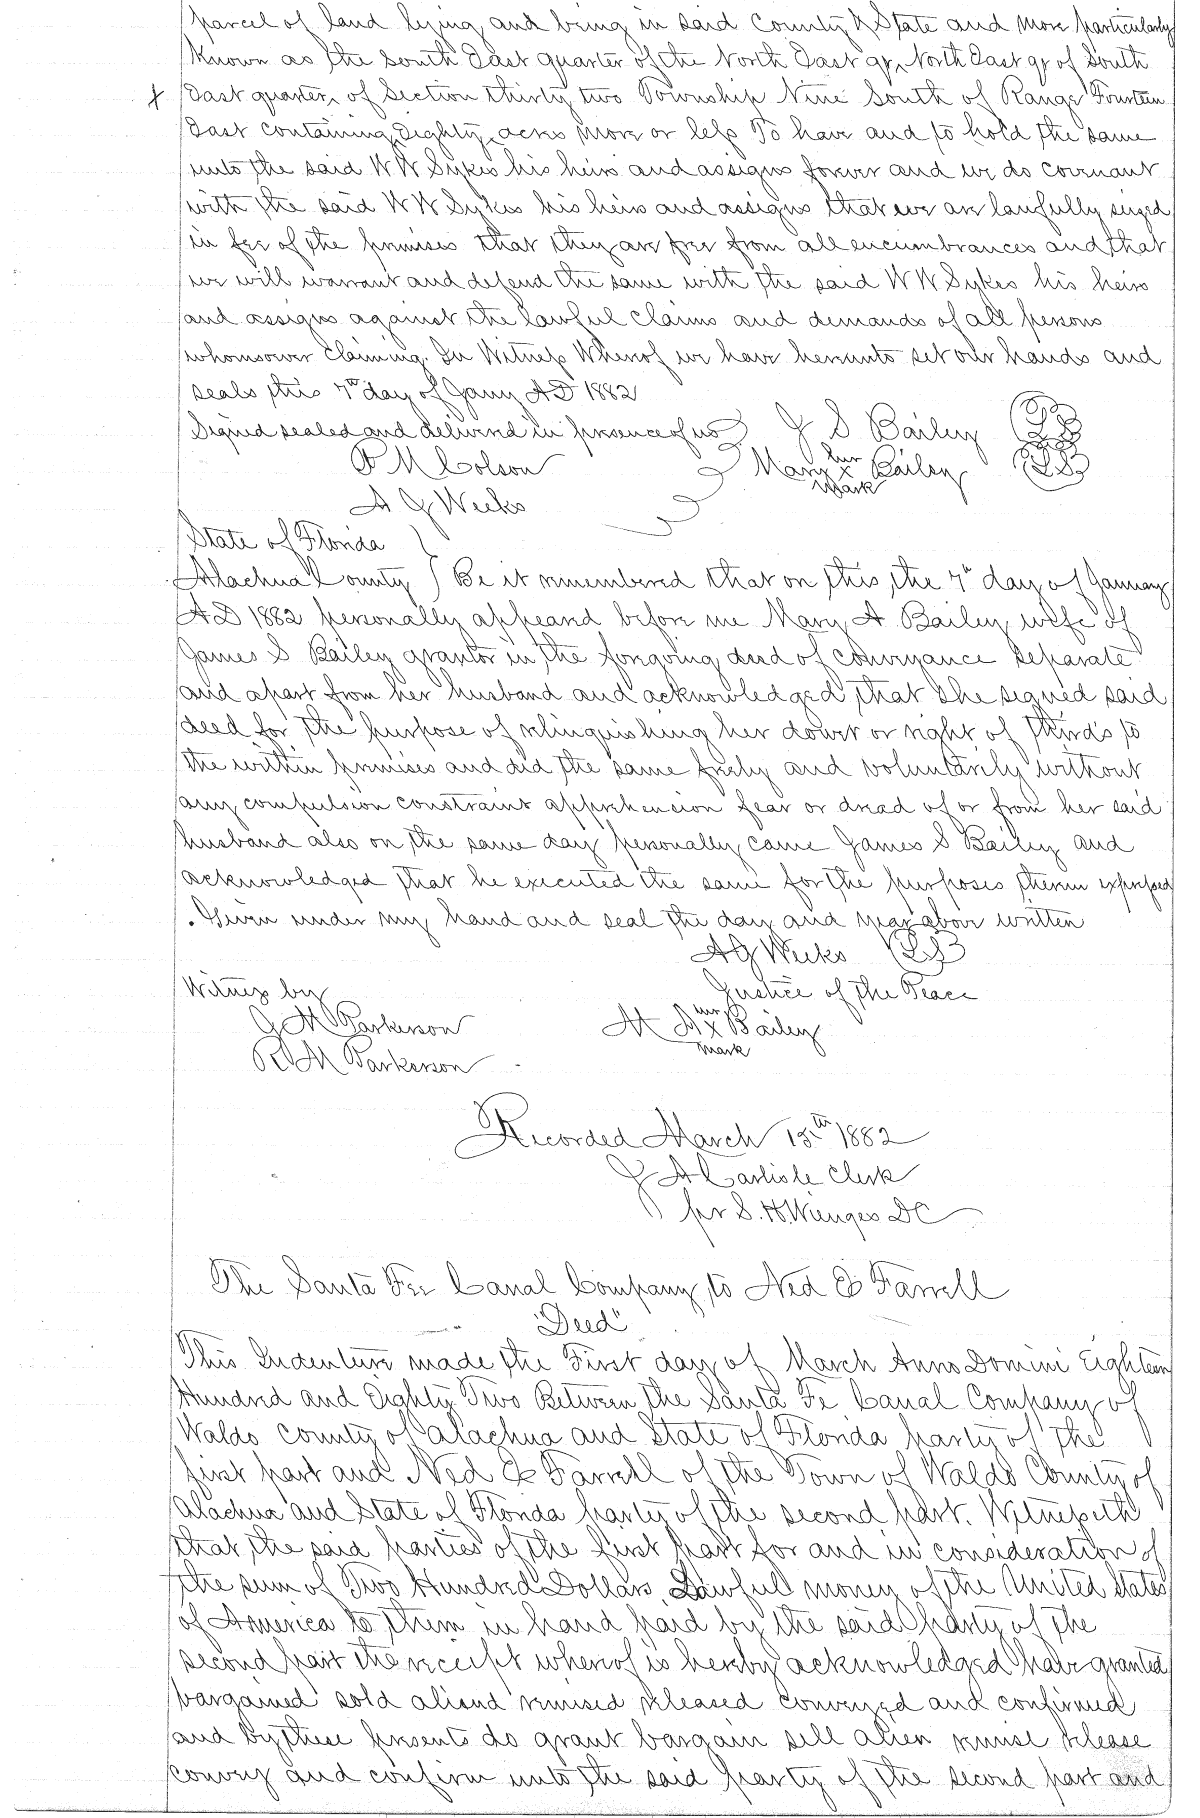 parcel of land lying and being in said County & State and more particularly
known as the South East quarter of the North East qr, North East qr of South
x East quarter, of Section thirty two Township Nine South of Range Fourteen
East containing Eighty acres more or less To have and to hold the same
unto the said W W Sykes his heirs and assigns forever and we do covenant
with the said W W Sykes his heirs and assigns that we are lawfully seized
in fee of the premises that they are free from all encumbrances and that
we will warrant and defend the same with the said W W Sykes his heirs
and assigns against the lawful claims and demands of all persons
whomsoever claiming. In Witness Whereof we have hereunto set our hands and
seals this 7th day of Jany AD 1882
Signed sealed and delivered in presence of us J S Bailey LS
P M Colson Mary her x mark Bailey LS
A G Weeks
State of Florida
Alachua County } Be it remembered that on this the 7th day of January
AD 1882 personally appeared before me Mary A Bailey wife of
James S Bailey grantor in the foregoing deed of conveyance separate
and apart from her husband and acknowledged that she signed said
deed for the purpose of relinquishing her dower or right of thirds to
the within premises and did the same freely and voluntarily without
any compulsion constraint apprehension fear or dread of or from her said
husband also on the same day personally came James S Bailey and
acknowledged that he executed the same for the purposes therein expressed
. Given under my hand and seal the day and year above written
A G Weeks LS
Witness by Justice of the Peace
J M Parkerson M A her x mark Bailey
R M Parkerson
Recorded March 15th 1882
J A Carlisle Clerk
pr S. H. Wienges DC
The Santa Fee Canal Company to Ned E Farrell
"Deed"
This Indenture made the First day of March Anno Domini Eighteen
Hundred and Eighty Two Between the Santa Fe Canal Company of
Waldo County of Alachua and State of Florida party of the
first part and Ned E Farrell of the Town of Waldo County of
Alachua and State of Florida party of the second part. Witnesseth
that the said parties of the first part for and in consideration of
the sum of Two Hundred Dollars Lawful money of the United States
of America to them in hand paid by the said party of the
second part the receipt whereof is hereby acknowledged have granted
bargained sold aliend remised released conveyed and confirmed
and by these presents do grant bargain sell alien remise release
convey and confirm unto the said party of the second part and